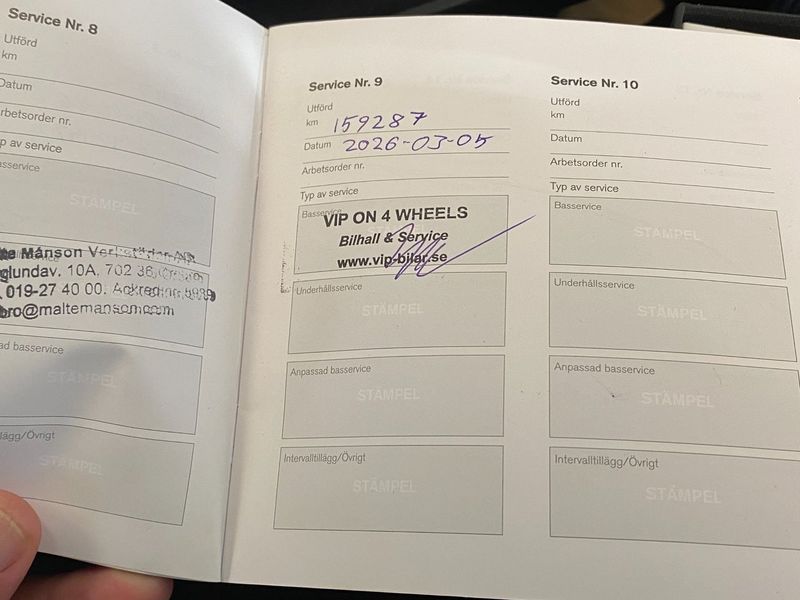 Service Nr. 8
Utförd
km
Datum
rbetsorder nr.
p av service
asservice
STÄMPEL
te Månson
glundav. 10A. 702 36
019-27 40 00.
bro@maltemanson.com
ad basservice
STÄMPEL
lägg/Övrigt
STÄMPEL
Service Nr. 9
Utförd
km 159287
Datum 2026-03-05
Arbetsorder nr.
Typ av service
Basservice
VIP ON 4 WHEELS
Bilhall & Service
www.vip-bilar.se
Underhållsservice
STÄMPEL
Anpassad basservice
STÄMPEL
Intervalltillägg/Övrigt
STÄMPEL
Service Nr. 10
Utförd
km
Datum
Arbetsorder nr.
Typ av service
Basservice
STÄMPEL
Underhållsservice
STÄMPEL
Anpassad basservice
STÄMPEL
Intervalltillägg/Övrigt
STÄMPEL